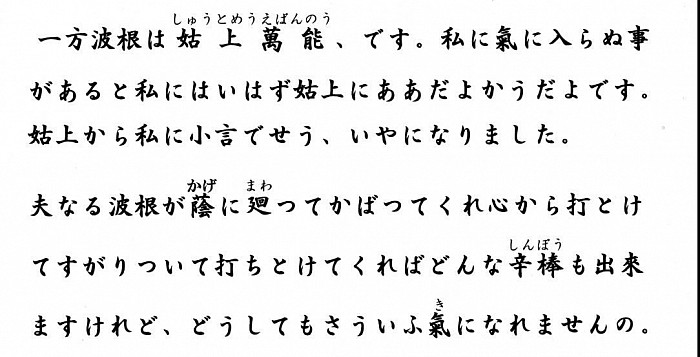 しゅうとめうえばんのう
一方波根は姑上萬能、です。私に氣に入らぬ事
があると私にはいはず姑上にああだよかうだよです。
姑上から私に小言でせう、いやになりました。
かげ まわ
夫なる波根が蔭に廻つてかばつてくれ心から打とけ
しんぼう
てすがりついて打ちとけてくればどんな辛棒も出來
き
ますけれど、どうしてもさういふ氣になれませんの。